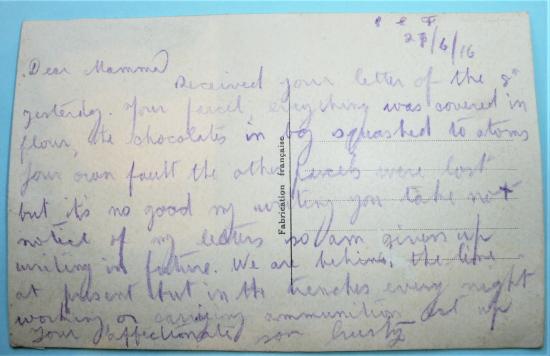 B E F
27/6/16
Dear Mamma
Received your letter of the 8th
yesterday. Your parcel everything was covered in
flour, the chocolates in bag squashed to atoms
your own fault the other parcels were lost
but it's no good my writing you take not
notice of my letters so am given up
writing in future. We are behind the line
at present but in the trenches every night
working or carrying ammunition up
your affectionate son
Fabrication française